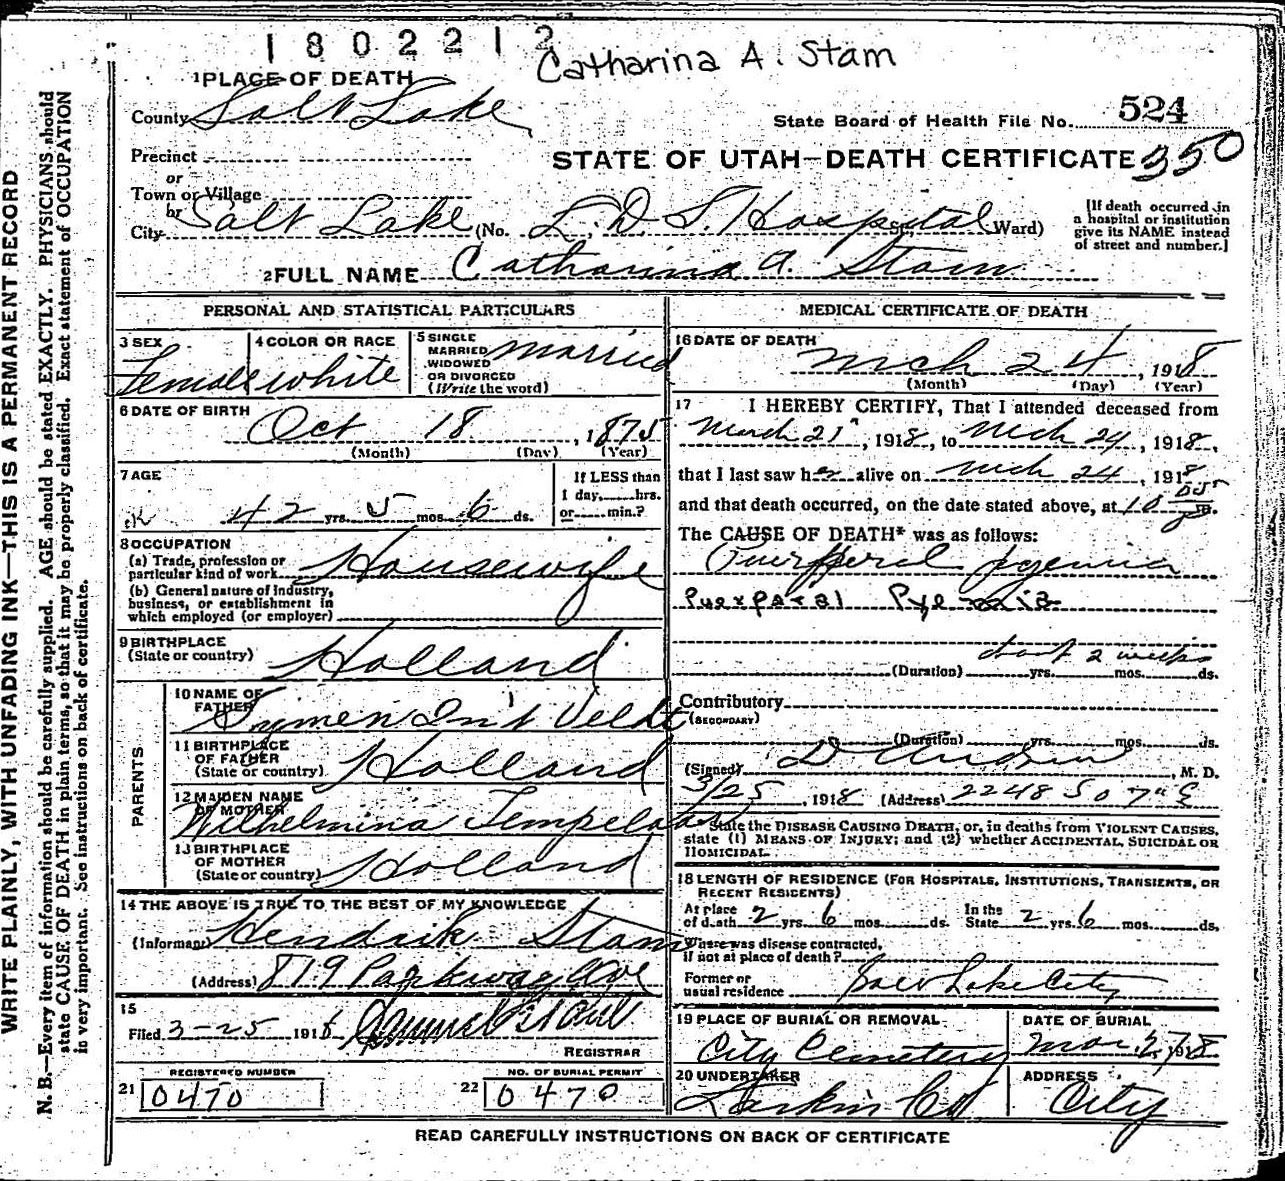 1802212
Catharina A. Stam
1 PLACE OF DEATH
County Salt Lake
State Board of Health File No. 524
Precinct
STATE OF UTAH—DEATH CERTIFICATE 350
or
Town or Village
or
City Salt Lake (No. L.D.S. Hospital St. Ward)
[If death occurred in
a hospital or institution
give its NAME instead
of street and number.]
2 FULL NAME Catharina A. Stam
PERSONAL AND STATISTICAL PARTICULARS
3 SEX
Female
4 COLOR OR RACE
white
5 SINGLE
MARRIED
WIDOWED
OR DIVORCED
(Write the word)
married
6 DATE OF BIRTH
Oct 18, 1875
(Month) (Day) (Year)
7 AGE
42 yrs. 5 mos. 6 ds.
If LESS than
1 day,......hrs.
or......min.?
8 OCCUPATION
(a) Trade, profession or
particular kind of work Housewife
(b) General nature of Industry,
business, or establishment in
which employed (or employer)
9 BIRTHPLACE
(State or country) Holland
PARENTS
10 NAME OF
FATHER
Tymen In't Veldt
11 BIRTHPLACE
OF FATHER
(State or country) Holland
12 MAIDEN NAME
OF MOTHER
Wilhelmina
13 BIRTHPLACE
OF MOTHER
(State or country) Holland
14 THE ABOVE IS TRUE TO THE BEST OF MY KNOWLEDGE
(Informant) Hendrik Stam
(Address) 819 Parkway Ave
15
Filed 3-25 1918
REGISTRAR
REGISTERED NUMBER
21 0470
NO. OF BURIAL PERMIT
22 0470
MEDICAL CERTIFICATE OF DEATH
16 DATE OF DEATH
Mch 24, 1918
(Month) (Day) (Year)
17 I HEREBY CERTIFY, That I attended deceased from
March 21, 1918, to Mch 24, 1918,
that I last saw her alive on Mch 24, 1918
and that death occurred, on the date stated above, at 10 05 P m.
The CAUSE OF DEATH* was as follows:
Puerperal pyemia
Puerperal Pyemia
(Duration) about 2 weeks yrs. mos. ds.
Contributory
(SECONDARY)
(Duration) yrs. mos. ds.
(Signed) , M. D.
3/25, 1918 (Address) 2248 So 7th E
*State the DISEASE CAUSING DEATH, or, in deaths from VIOLENT CAUSES,
state (1) MEANS OF INJURY; and (2) whether ACCIDENTAL, SUICIDAL OR
HOMICIDAL.
18 LENGTH OF RESIDENCE (FOR HOSPITALS, INSTITUTIONS, TRANSIENTS, OR
RECENT RESIDENTS)
At place
of death 2 yrs. 6 mos. ds.
In the
State 2 yrs. 6 mos. ds.
Where was disease contracted,
if not at place of death?
Former or
usual residence Salt Lake City
19 PLACE OF BURIAL OR REMOVAL
City Cemetery
DATE OF BURIAL
Mar 27, 1918
20 UNDERTAKER
Larkin Co
ADDRESS
City
READ CAREFULLY INSTRUCTIONS ON BACK OF CERTIFICATE
WRITE PLAINLY, WITH UNFADING INK—THIS IS A PERMANENT RECORD
N. B.—Every item of information should be carefully supplied. AGE should be stated EXACTLY. PHYSICIANS should
state CAUSE OF DEATH in plain terms, so that it may be properly classified. Exact statement of OCCUPATION
is very important. See instructions on back of certificate.